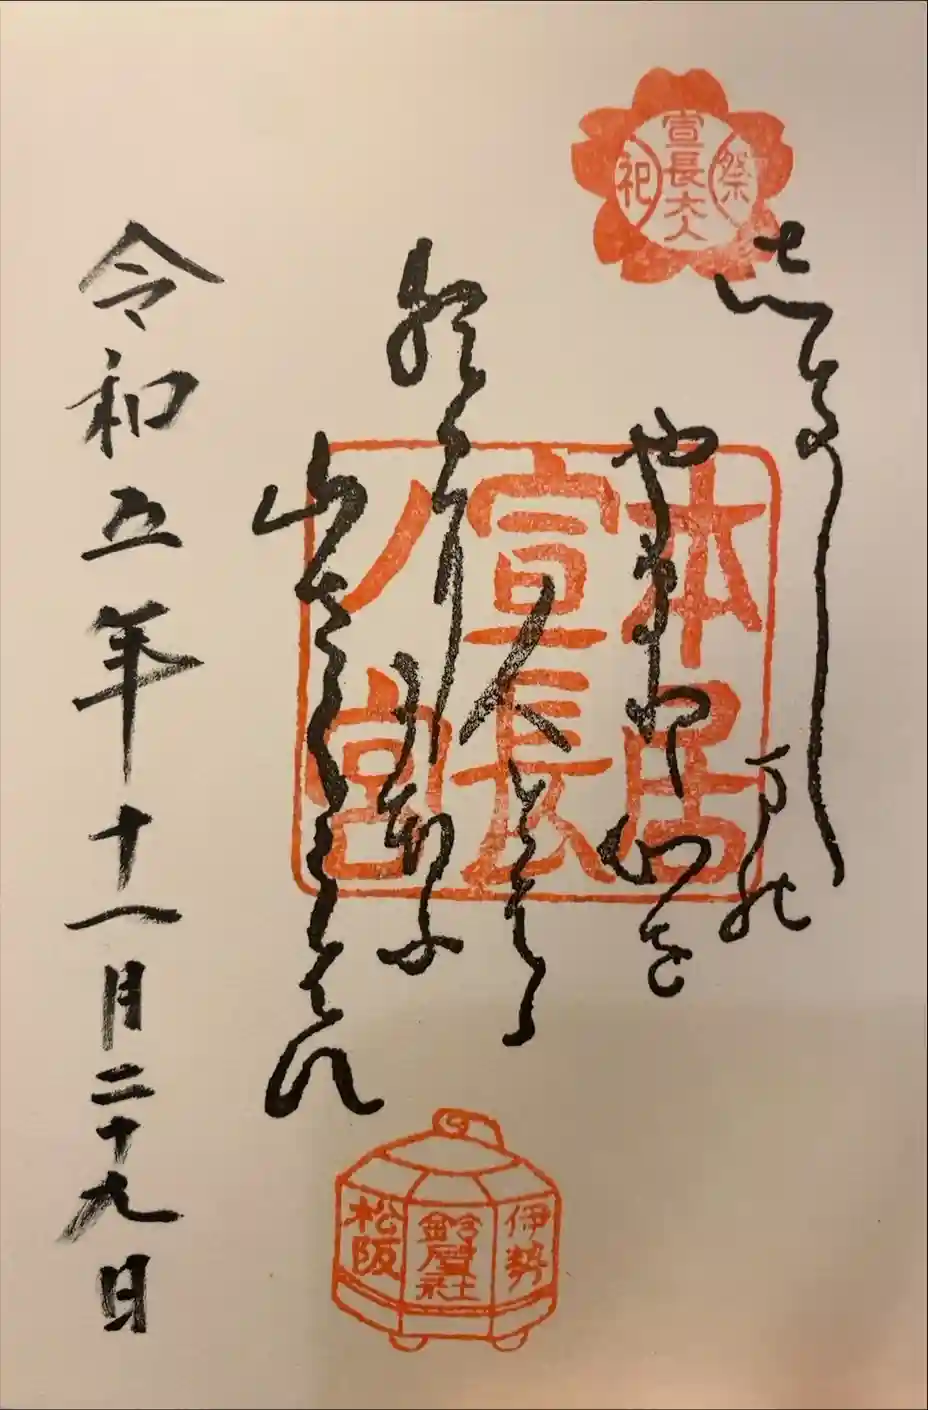 祭
宣長大人
祀
志きしまの
やまと心を
人とはゝ
朝日に
にほふ
山さくらはな
本居
宣長
ノ宮
伊勢
鈴屋社
松阪
令和五年十一月二十九日